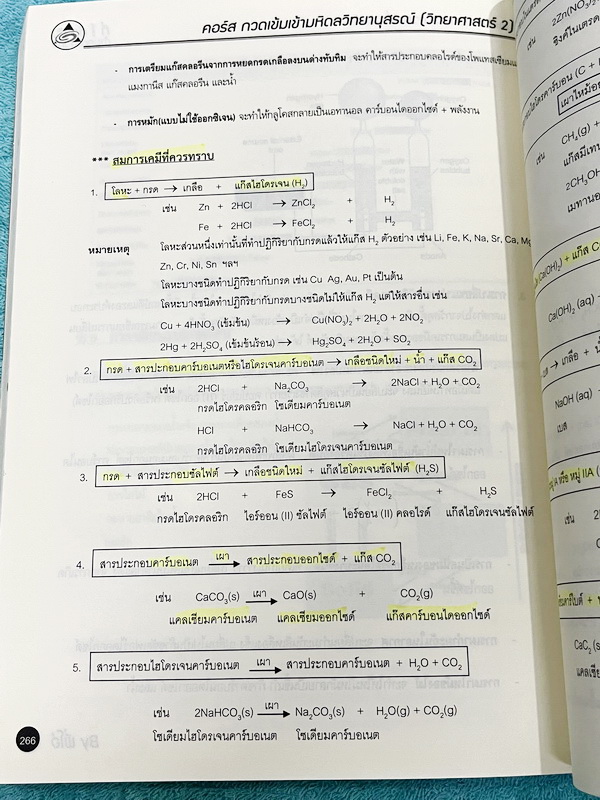 คอร์ส กวดเข้มเข้ามหิดลวิทยานุสรณ์ (วิทยาศาสตร์ 2)
- การเตรียมแก๊สคลอรีนจากการหยดกรดเกลือลงบนด่างทับทิม จะทำให้สารประกอบคลอไรด์ของโพแทสเซียมและ
แมงกานีส แก๊สคลอรีน และน้ำ
- การหมัก(แบบไม่ใช้ออกซิเจน) จะทำให้กลูโคสกลายเป็นเอทานอล คาร์บอนไดออกไซด์ + พลังงาน
*** สมการเคมีที่ควรทราบ
1. โลหะ + กรด → เกลือ + แก๊สไฮโดรเจน (H₂)
เช่น Zn + 2HCl → ZnCl₂ + H₂
Fe + 2HCl → FeCl₂ + H₂
หมายเหตุ โลหะส่วนหนึ่งเท่านั้นที่ทำปฏิกิริยากับกรดแล้วให้แก๊ส H₂ ตัวอย่าง เช่น Li, Fe, K, Na, Sr, Ca, Mg
Zn, Cr, Ni, Sn ฯลฯ
โลหะบางชนิดทำปฏิกิริยากับกรด เช่น Cu Ag, Au, Pt เป็นต้น
โลหะบางชนิดทำปฏิกิริยากับกรดบางชนิดไม่ให้แก๊ส H₂ แต่ให้สารอื่น เช่น
Cu + 4HNO₃ (เข้มข้น) → Cu(NO₃)₂ + 2H₂O + 2NO₂
2Hg + 2H₂SO₄ (เข้มข้นร้อน) → Hg₂SO₄ + 2H₂O + SO₂
2. กรด + สารประกอบคาร์บอเนตหรือไฮโดรเจนคาร์บอเนต → เกลือชนิดใหม่ + น้ำ + แก๊ส CO₂
เช่น 2HCl + Na₂CO₃ → 2NaCl + H₂O + CO₂
กรดไฮโดรคลอริก โซเดียมคาร์บอเนต
HCl + NaHCO₃ → NaCl + H₂O + CO₂
กรดไฮโดรคลอริก โซเดียมไฮโดรเจนคาร์บอเนต
3. กรด + สารประกอบซัลไฟต์ → เกลือชนิดใหม่ + แก๊สไฮโดรเจนซัลไฟต์ (H₂S)
เช่น 2HCl + FeS → FeCl₂ + H₂S
กรดไฮโดรคลอริก ไอร์ออน (II) ซัลไฟต์ ไอร์ออน (II) คลอไรด์ แก๊สไฮโดรเจนซัลไฟต์
4. สารประกอบคาร์บอเนต เผา→ สารประกอบออกไซด์ + แก๊ส CO₂
เช่น CaCO₃(s) เผา→ CaO(s) + CO₂(g)
แคลเซียมคาร์บอเนต แคลเซียมออกไซด์ แก๊สคาร์บอนไดออกไซด์
5. สารประกอบไฮโดรเจนคาร์บอเนต เผา→ สารประกอบคาร์บอเนต + H₂O + CO₂
เช่น 2NaHCO₃(s) เผา→ Na₂CO₃(s) + H₂O(g) + CO₂(g)
โซเดียมไฮโดรเจนคาร์บอเนต โซเดียมคาร์บอเนต
266
2Zn(NO₃)₂
เช่น
คาร์บอน (C + H
เผาไหม้
CH₄(g) +
เช่น
แก๊สมีเทน
2CH₃OH
เมทานอล
(Ca(OH)₂) + แก๊ส C
Ca(OH)₂ (aq)
เบส → เกลือ + น้ำ
NaOH (aq)
เบส
IA หรือ หมู่ IIA (
เช่น
CaC₂ (s)
แคลเซียม